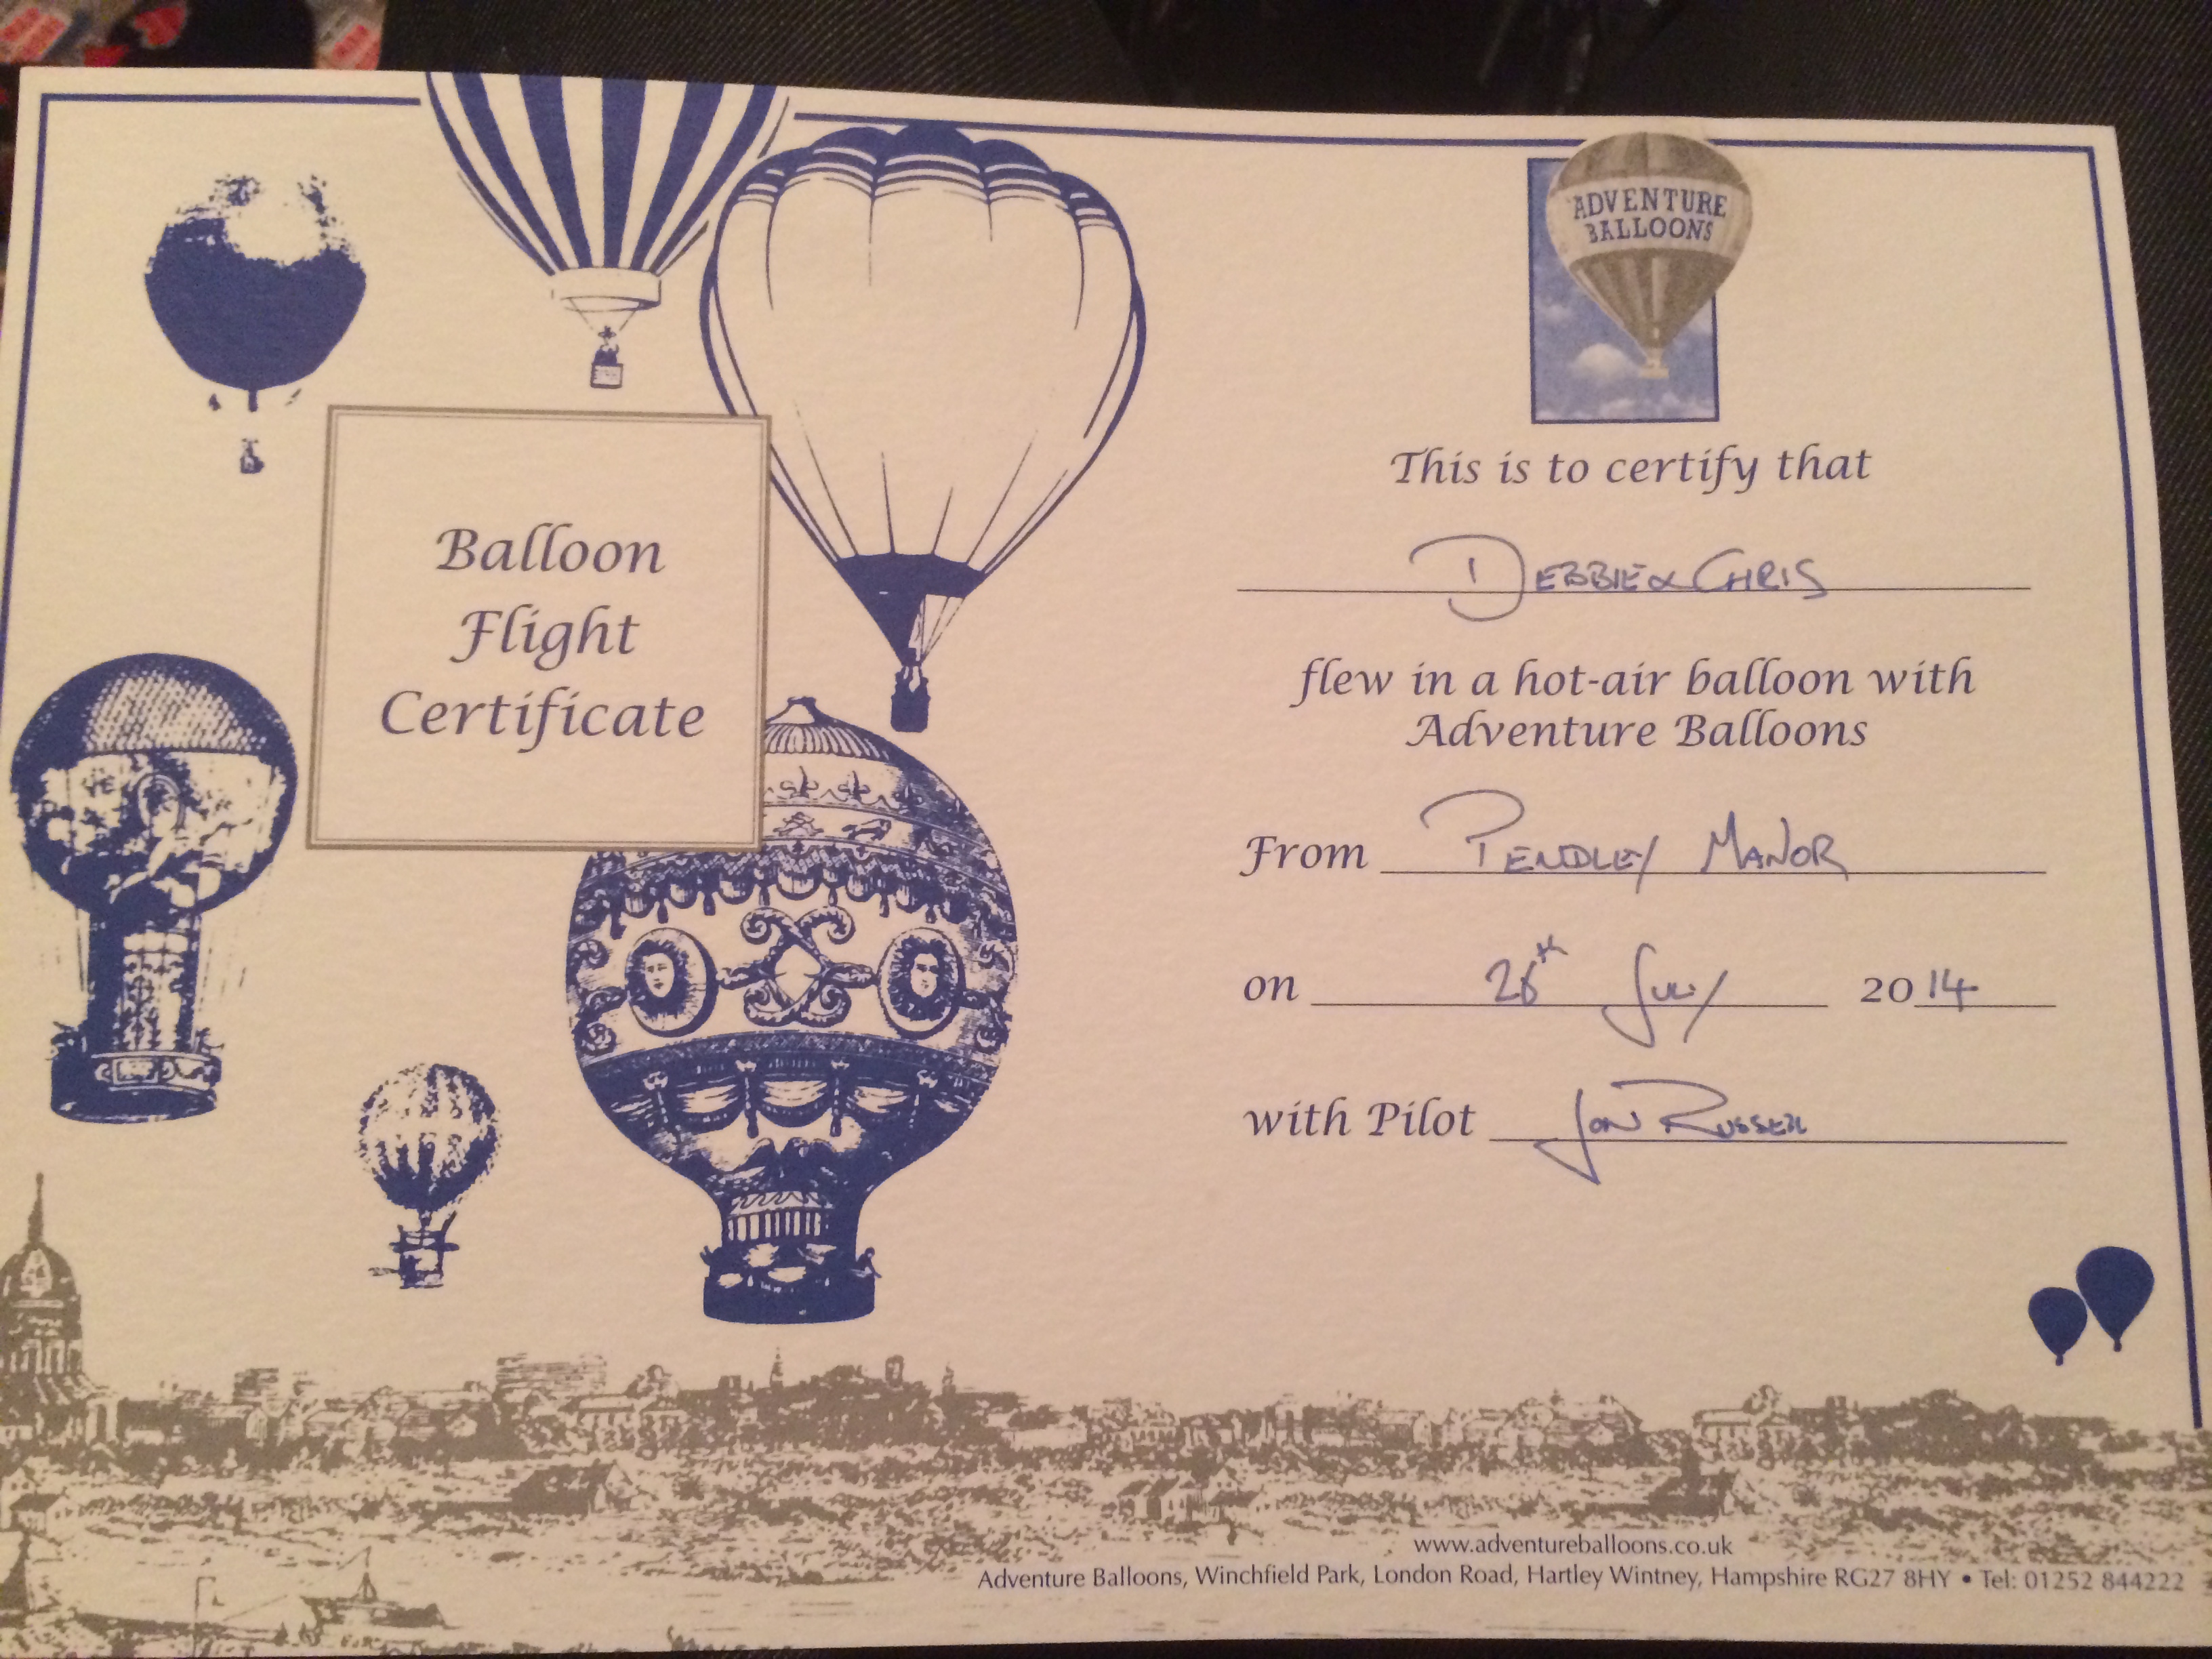 ADVENTURE
BALLOONS
Balloon
Flight
Certificate
This is to certify that
DEBBIE & CHRIS
flew in a hot-air balloon with
Adventure Balloons
From PENDLEY MANOR
on July 2014
with Pilot JON RUSSELL
www.adventureballoons.co.uk
Adventure Balloons, Winchfield Park, London Road, Hartley Wintney, Hampshire RG27 8HY • Tel: 01252 844222